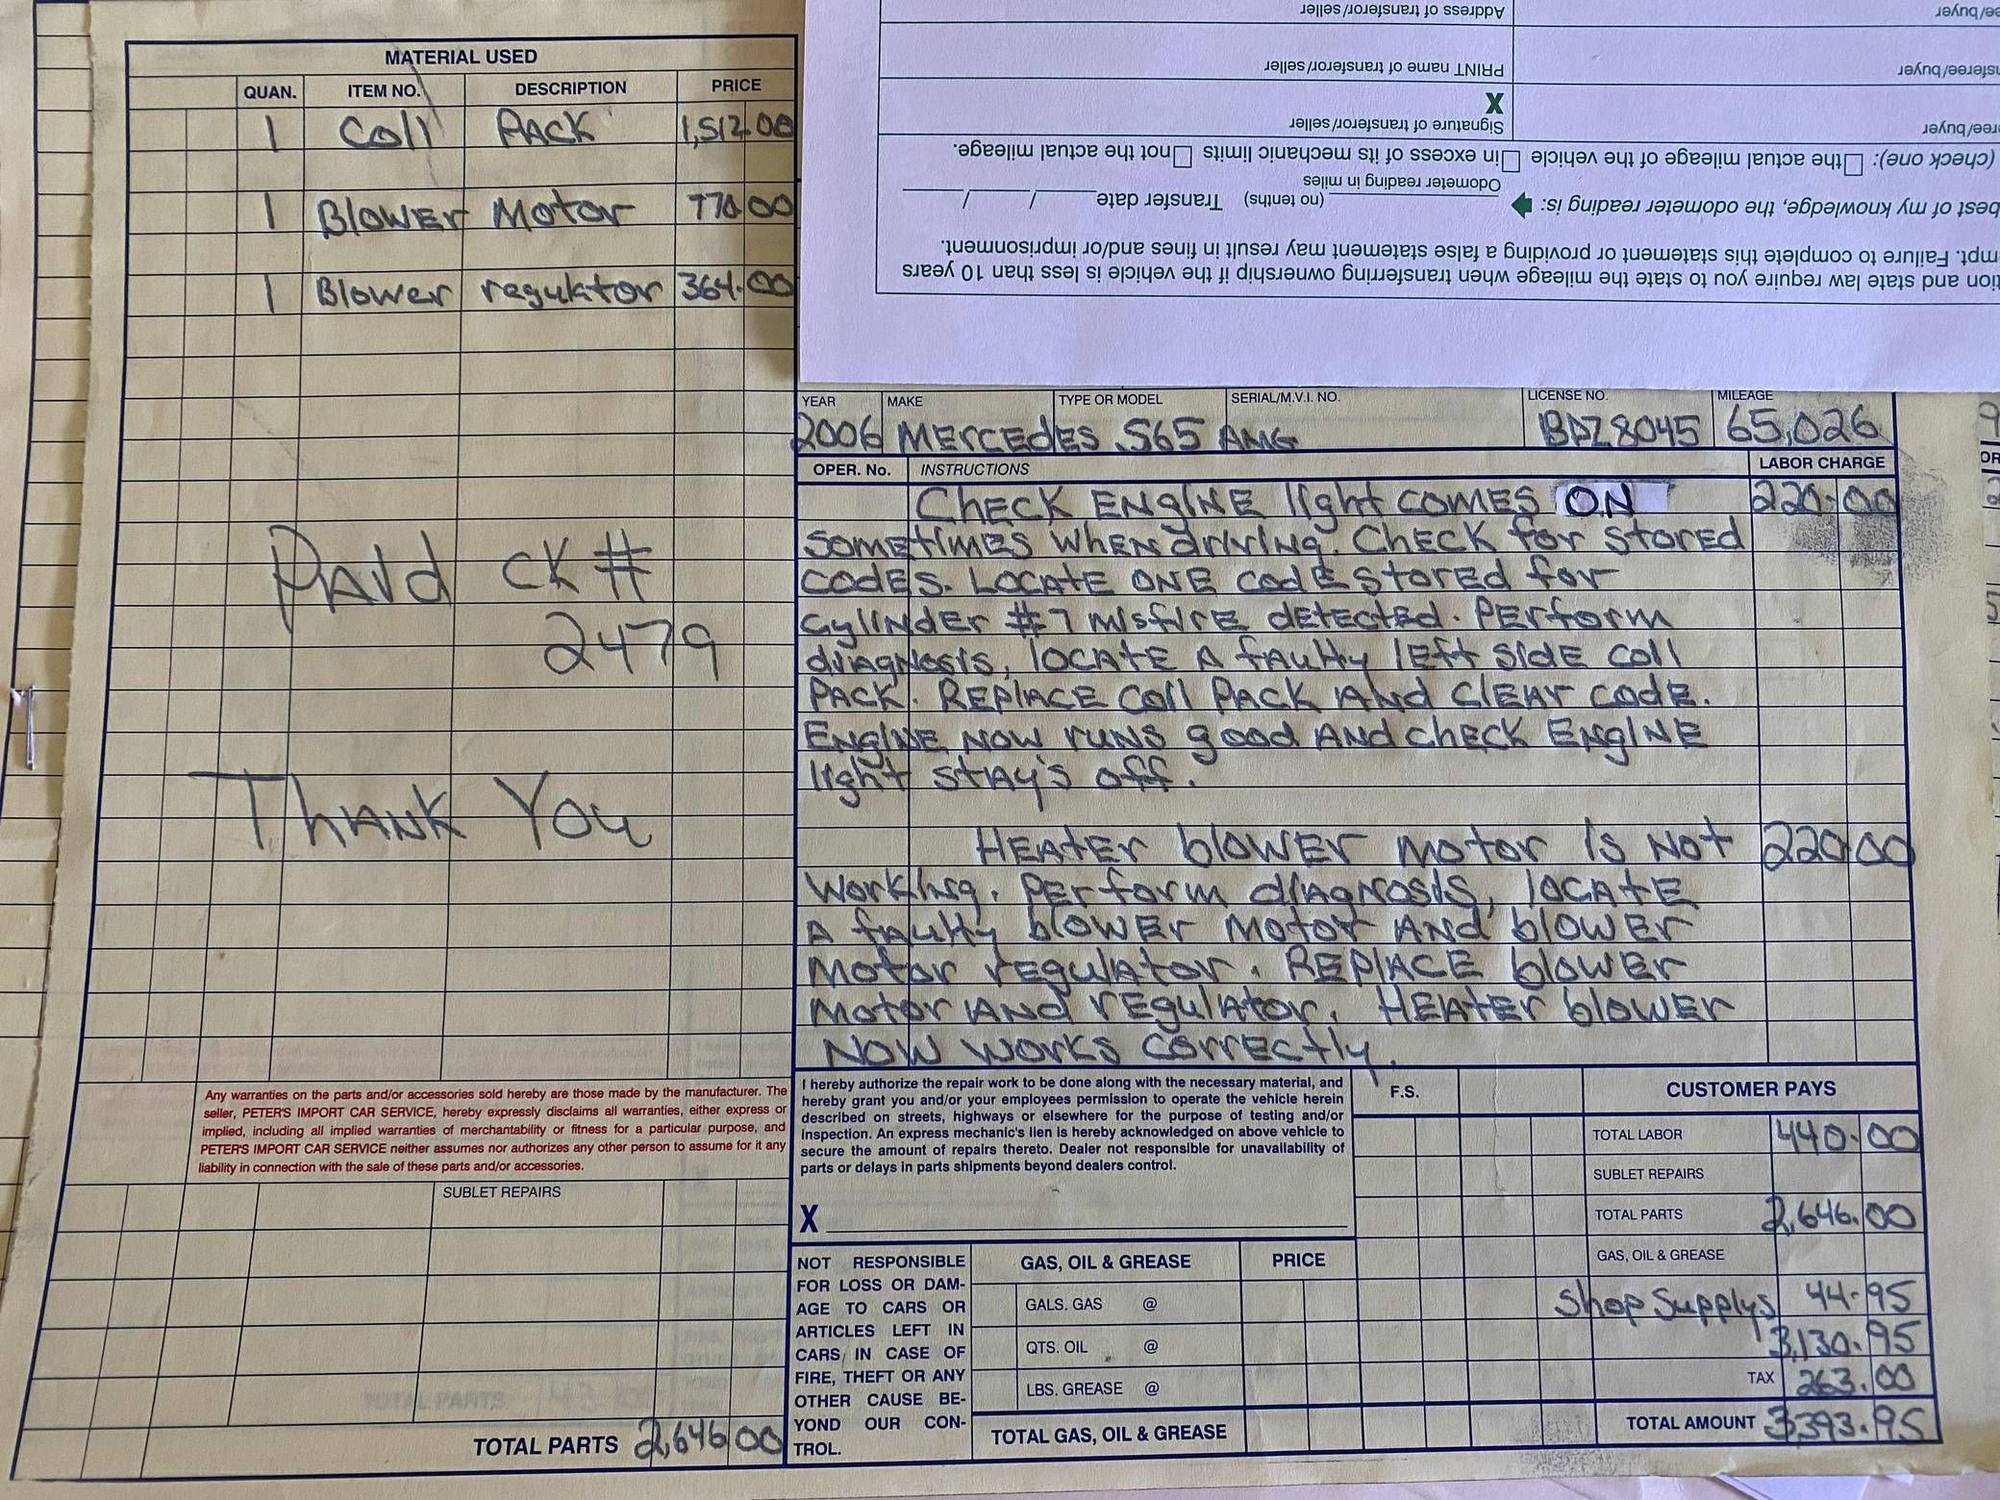 MATERIAL USED
QUAN. ITEM NO. DESCRIPTION PRICE
1 Coil PACK 1,512.00
1 Blower Motor 770.00
1 Blower regulator 364.00
PAid CK #
2479
THANK You
Any warranties on the parts and/or accessories sold hereby are those made by the manufacturer. The
seller, PETER'S IMPORT CAR SERVICE, hereby expressly disclaims all warranties, either express or
implied, including all implied warranties of merchantability or fitness for a particular purpose, and
PETER'S IMPORT CAR SERVICE neither assumes nor authorizes any other person to assume for it any
liability in connection with the sale of these parts and/or accessories.
SUBLET REPAIRS
TOTAL PARTS 2,646.00
Address of transferor/seller
ee/buyer
PRINT name of transferor/seller
nsferee/buyer
X
Signature of transferor/seller
eree/buyer
(check one): the actual mileage of the vehicle in excess of its mechanic limits not the actual mileage.
best of my knowledge, the odometer reading is: (no tenths) Transfer date / /
Odometer reading in miles
mpt. Failure to complete this statement or providing a false statement may result in fines and/or imprisonment.
tion and state law require you to state the mileage when transferring ownership if the vehicle is less than 10 years
YEAR MAKE TYPE OR MODEL SERIAL/M.V.I. NO. LICENSE NO. MILEAGE
2006 MERCEDES S65 AMG BDZ8045 65,026
OPER. No. INSTRUCTIONS LABOR CHARGE
CHECK ENGINE light COMES ON 220.00
SOMEtIMES WHEN driving. CHECK for stored
CODES. LOCATE ONE CODE stored for
Cylinder #7 misfire detected. PERform
diagnosis, locate A faulty left side coil
PACK. REPLACE Coil PACK AND CLEAR CODE.
ENGINE NOW runs good AND check ENGINE
light stay's off.
HEATER blower motor is Not 220.00
Working. PERform diagnosis, locate
A faulty blower motor AND blower
motor regulator. REPLACE blower
motor AND regulator. HEATER blower
NOW works correctly.
I hereby authorize the repair work to be done along with the necessary material, and
hereby grant you and/or your employees permission to operate the vehicle herein
described on streets, highways or elsewhere for the purpose of testing and/or
inspection. An express mechanic's lien is hereby acknowledged on above vehicle to
secure the amount of repairs thereto. Dealer not responsible for unavailability of
parts or delays in parts shipments beyond dealers control.
X
NOT RESPONSIBLE
FOR LOSS OR DAM-
AGE TO CARS OR
ARTICLES LEFT IN
CARS IN CASE OF
FIRE, THEFT OR ANY
OTHER CAUSE BE-
YOND OUR CON-
TROL.
GAS, OIL & GREASE PRICE
GALS. GAS @
QTS. OIL @
LBS. GREASE @
TOTAL GAS, OIL & GREASE
F.S. CUSTOMER PAYS
TOTAL LABOR 440.00
SUBLET REPAIRS
TOTAL PARTS 2,646.00
GAS, OIL & GREASE
Shop Supplys 44.95
3,130.95
TAX 263.00
TOTAL AMOUNT 3393.95